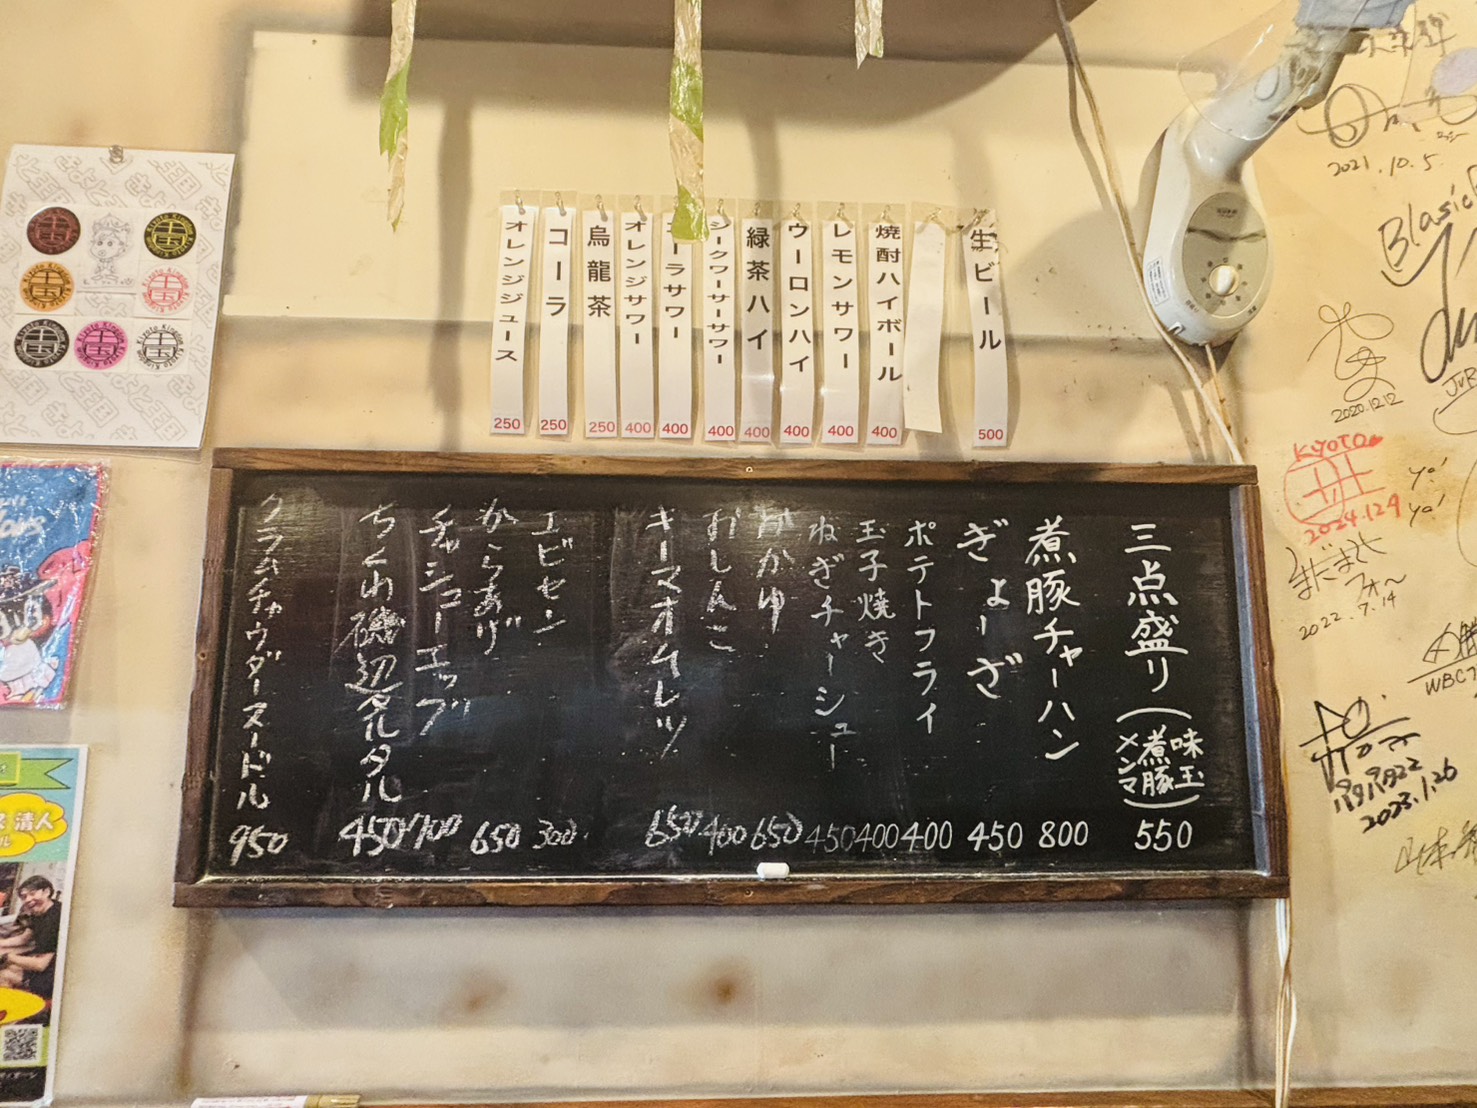 生ビール 500
焼酎ハイボール 400
レモンサワー 400
ウーロンハイ 400
緑茶ハイ 400
シークワーサーサワー 400
ーラサワー 400
オレンジサワー 400
烏龍茶 250
コーラ 250
オレンジジュース 250
三点盛り(味玉 煮豚 メンマ) 550
煮豚チャーハン 800
ぎょーざ 450
ポテトフライ 400
玉子焼き 400
ねぎチャーシュー 450
650
おしんこ 400
キーマオムレツ 650
エビセン 300
からあげ 650
チャシューエッグ 700
ちくわ磯辺タルタル 450
クラムチャウダーヌードル 950
Kyoto Kingdom
2021.10.5
Blasic
2020.12.12
KYOTO
2024.1.29
yo!
yo!
2022.7.14
WBC
2023.1.26
清人